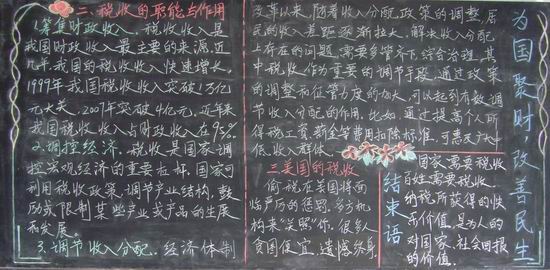 二、税收的职能与作用
1.筹集财政收入。税收收入是
我国财政收入最主要的来源,近
几年,我国的税收收入快速增长,
1999年我国税收收入突破1万亿
元大关,2007年突破4亿元,近年来
我国税收收入占财政收入在95%。
2.调控经济。税收是国家调
控宏观经济的重要杠杆,国家可
利用税收政策,调节产业结构,鼓
励或限制某些产业或产品的生展
和发展。
3.调节收入分配。经济体制
改革以来,随着收入分配政策的调整,居
民的收入差距逐渐拉大。解决收入分配
上存在的问题,需要多管齐下,综合治理。其
中税收作为重要的调节手段,通过政策
的调整和征管力度的加大,可以起到有效调
节收入分配的作用。比如,通过提高个人所
得税工资、薪金等费用扣除标准,可惠及广大中
低收入群体。
三.美国的税收
偷税在美国将面
临严厉的惩罚,多方机
构来“关照”你,很多人
贪图便宜,遗憾终身
结束语
国家需要税收
百姓需要税收
纳税所获得的快
乐价值,是为人的
对国家、社会回报
的价值.
为国聚财,改善民生